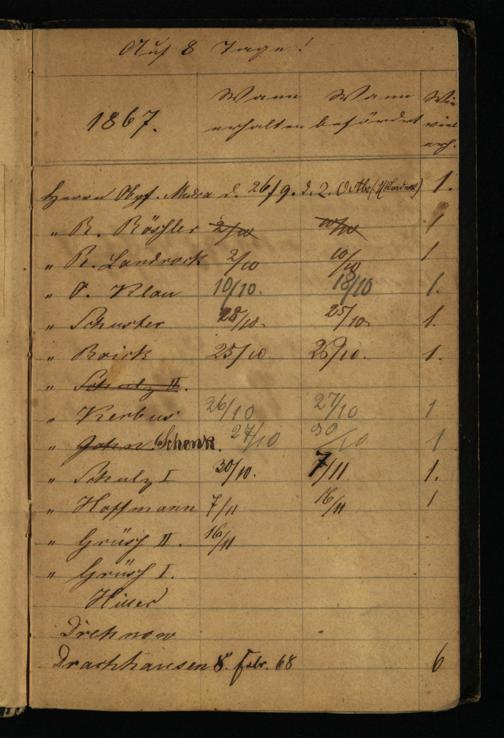 Auf 8 Tage!
1867. Wann erhalten Wann befördert Wie viel
Herrn Obpf. d. 26/9. d. 2. 1.
" R. Röschler 2/10 10/10 1
" R. Landrock 2/10 10/10 1
" P. Klau 10/10. 18/10 1.
" Schuster 18/10. 25/10 1.
" Boick 25/10 26/10. 1.
" Schulz II.
" Kerbus 26/10 27/10 1
" Schenk. 27/10 30/10 1
" Schulz I 30/10. 7/11 1.
" Hoffmann 7/11 16/11 1
" Grüsch II. 16/11
" Grüsch I.
Drehnow
Drachhausen 8. Febr. 68 6